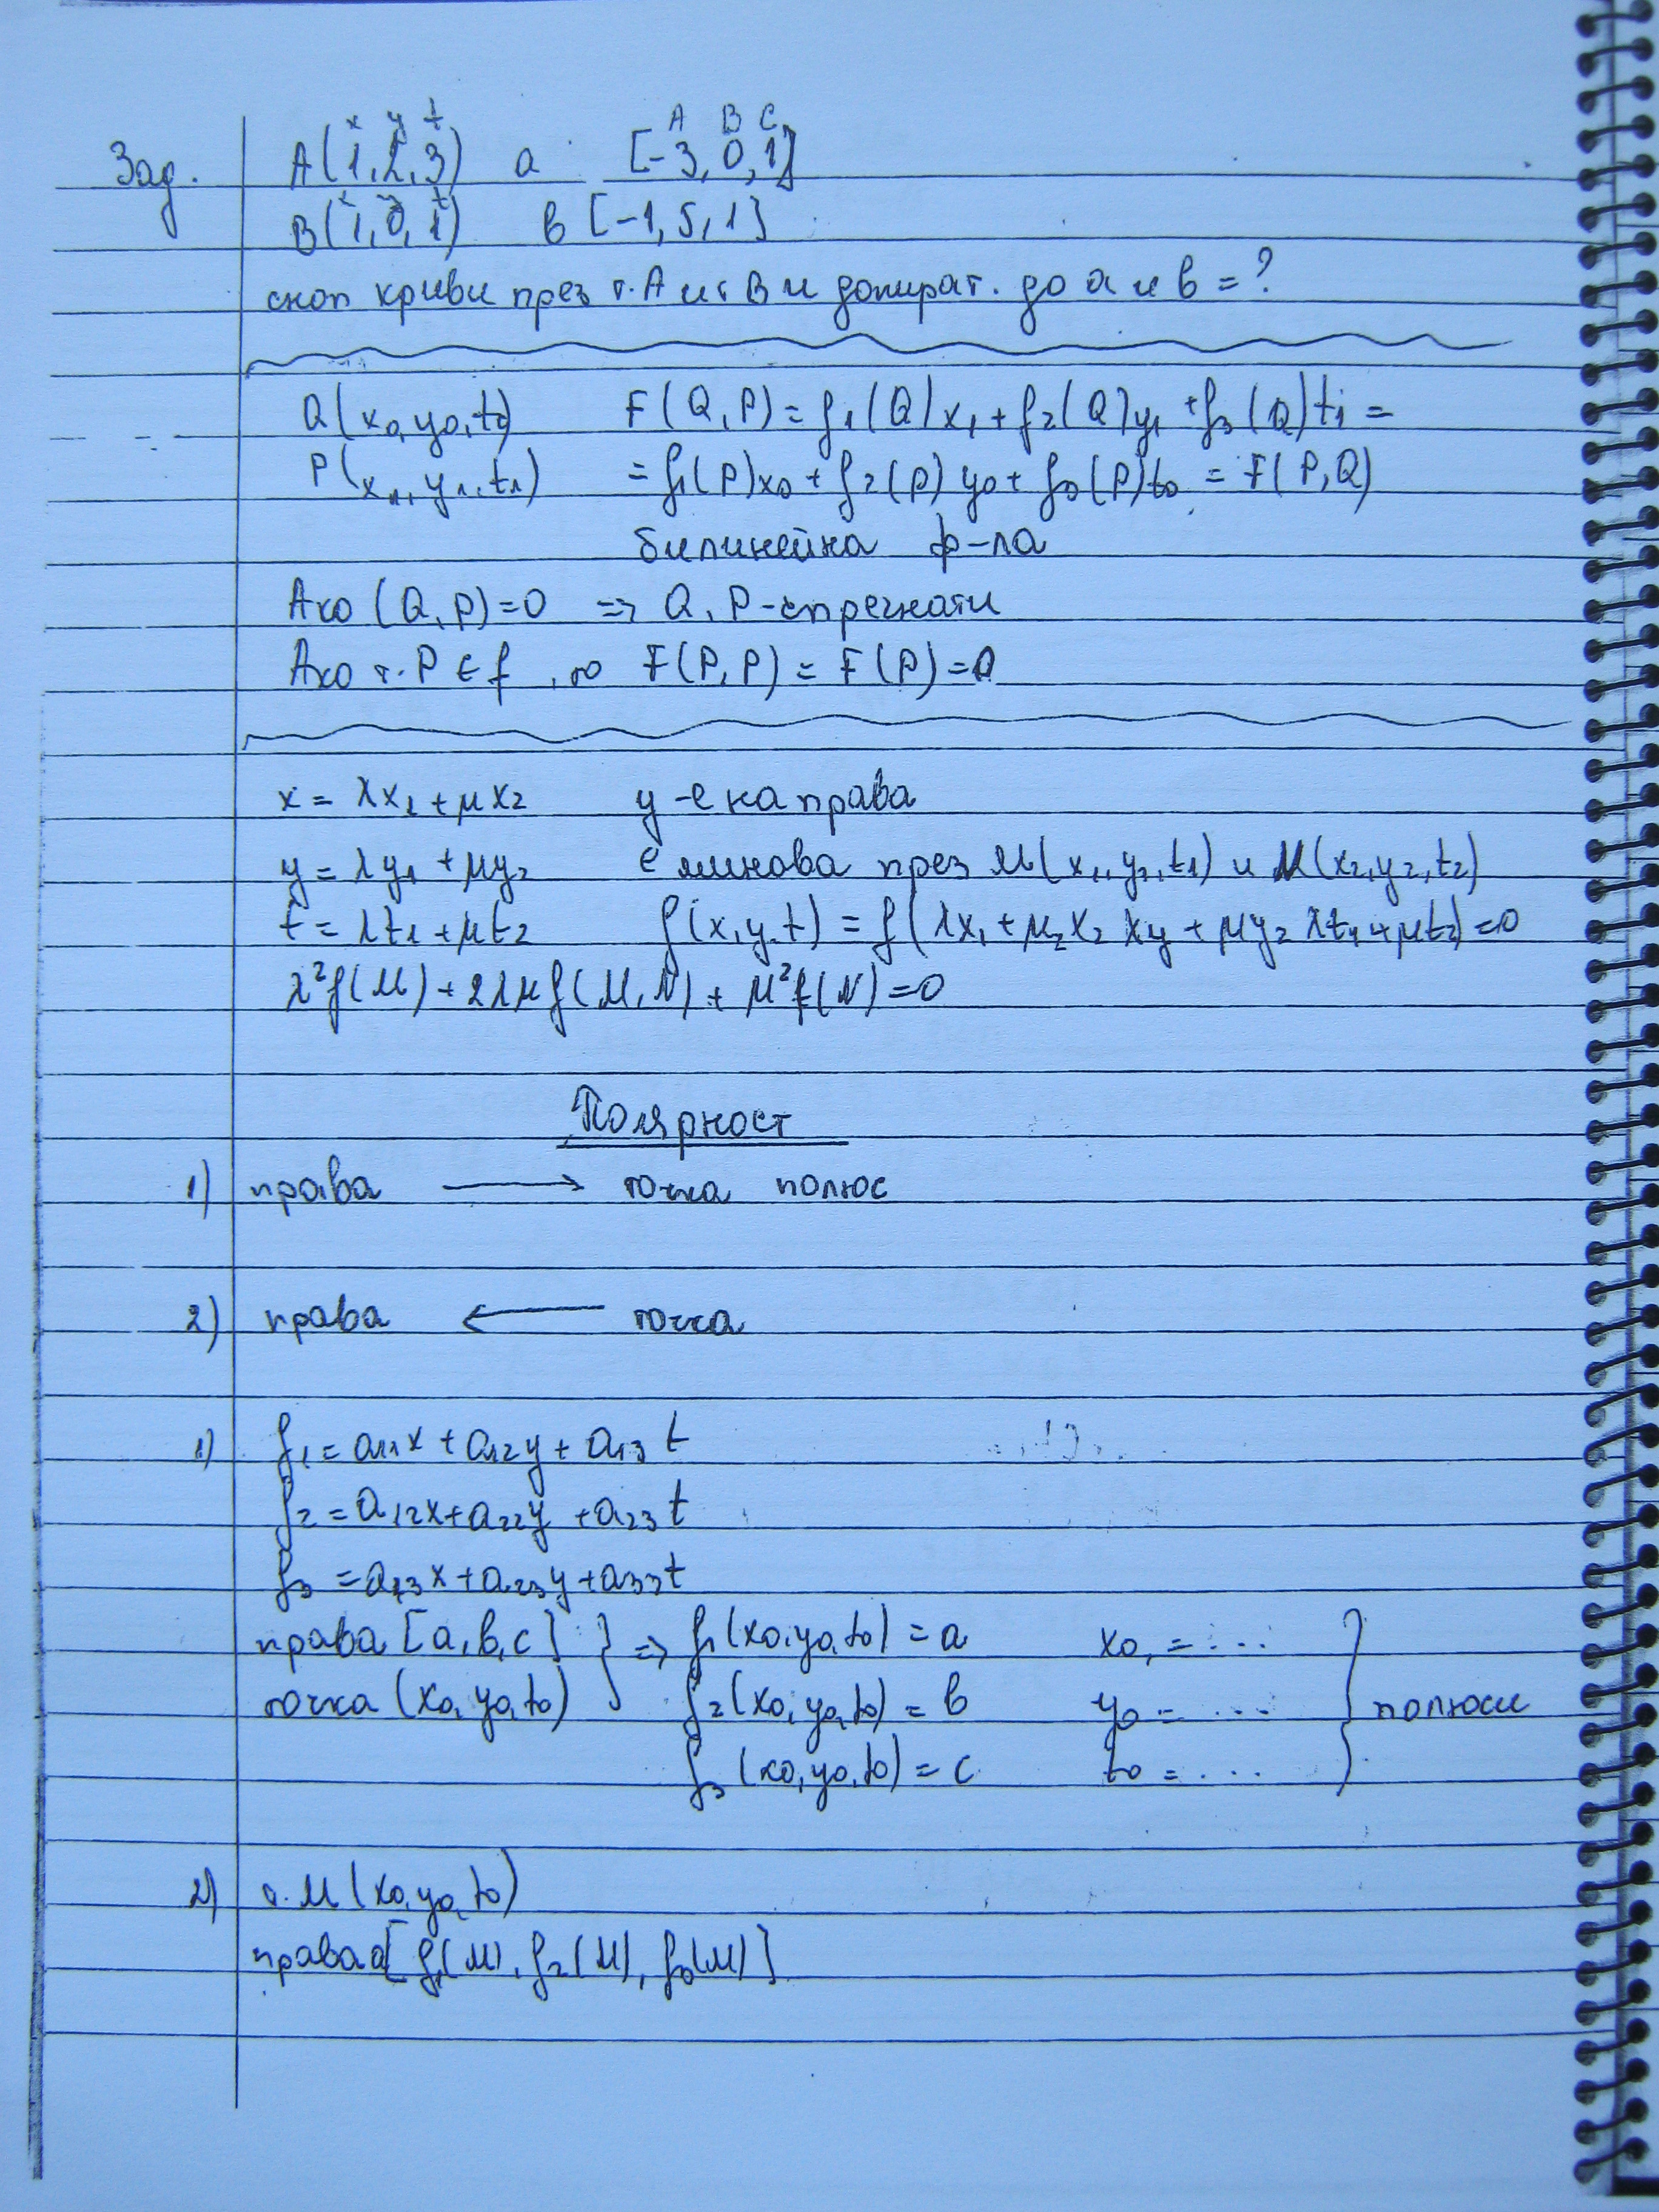 x y t A B C
Зад. A(1,2,3) a [-3,0,1]
x y t
B(1,0,1) в [-1,5,1]
сноп криви през т.A и т B и допират. до a и в = ?
Q(x0,y0,t0) F(Q,P) = f1(Q)x1 + f2(Q)y1 + f3(Q)t1 =
P(x1,y1,t1) = f1(P)x0 + f2(P)y0 + f3(P)t0 = F(P,Q)
билинейна ф-ла
Ако (Q,P)=0 => Q,P-спрегнати
Ако т.P ∈ f, то F(P,P) = F(P) = 0
x = λx1 + μx2 у-е на права
y = λy1 + μy2 през M(x1,y1,t1) и (x2,y2,t2)
t = λt1 + μt2 f(x,y,t) = f(λx1 + μ2x2 λy + μy2 λt1 + μt2) = 0
λ²f(M) + 2λμf(M,N) + μ²f(N) = 0
Полярност
1) права ⟶ точка полюс
2) права ⟵ точка
1) f1 = a11x + a12y + a13t
f2 = a12x + a22y + a23t
f3 = a13x + a23y + a33t
права [a,в,c] } => f1(x0,y0,t0) = a x0, = ...
точка (x0,y0,t0) f2(x0,y0,t0) = в y0 = ... } полюси
f3(x0,y0,t0) = c t0 = ...
2) т.M(x0,y0,t0)
права a[f1(M), f2(M), f3(M)]